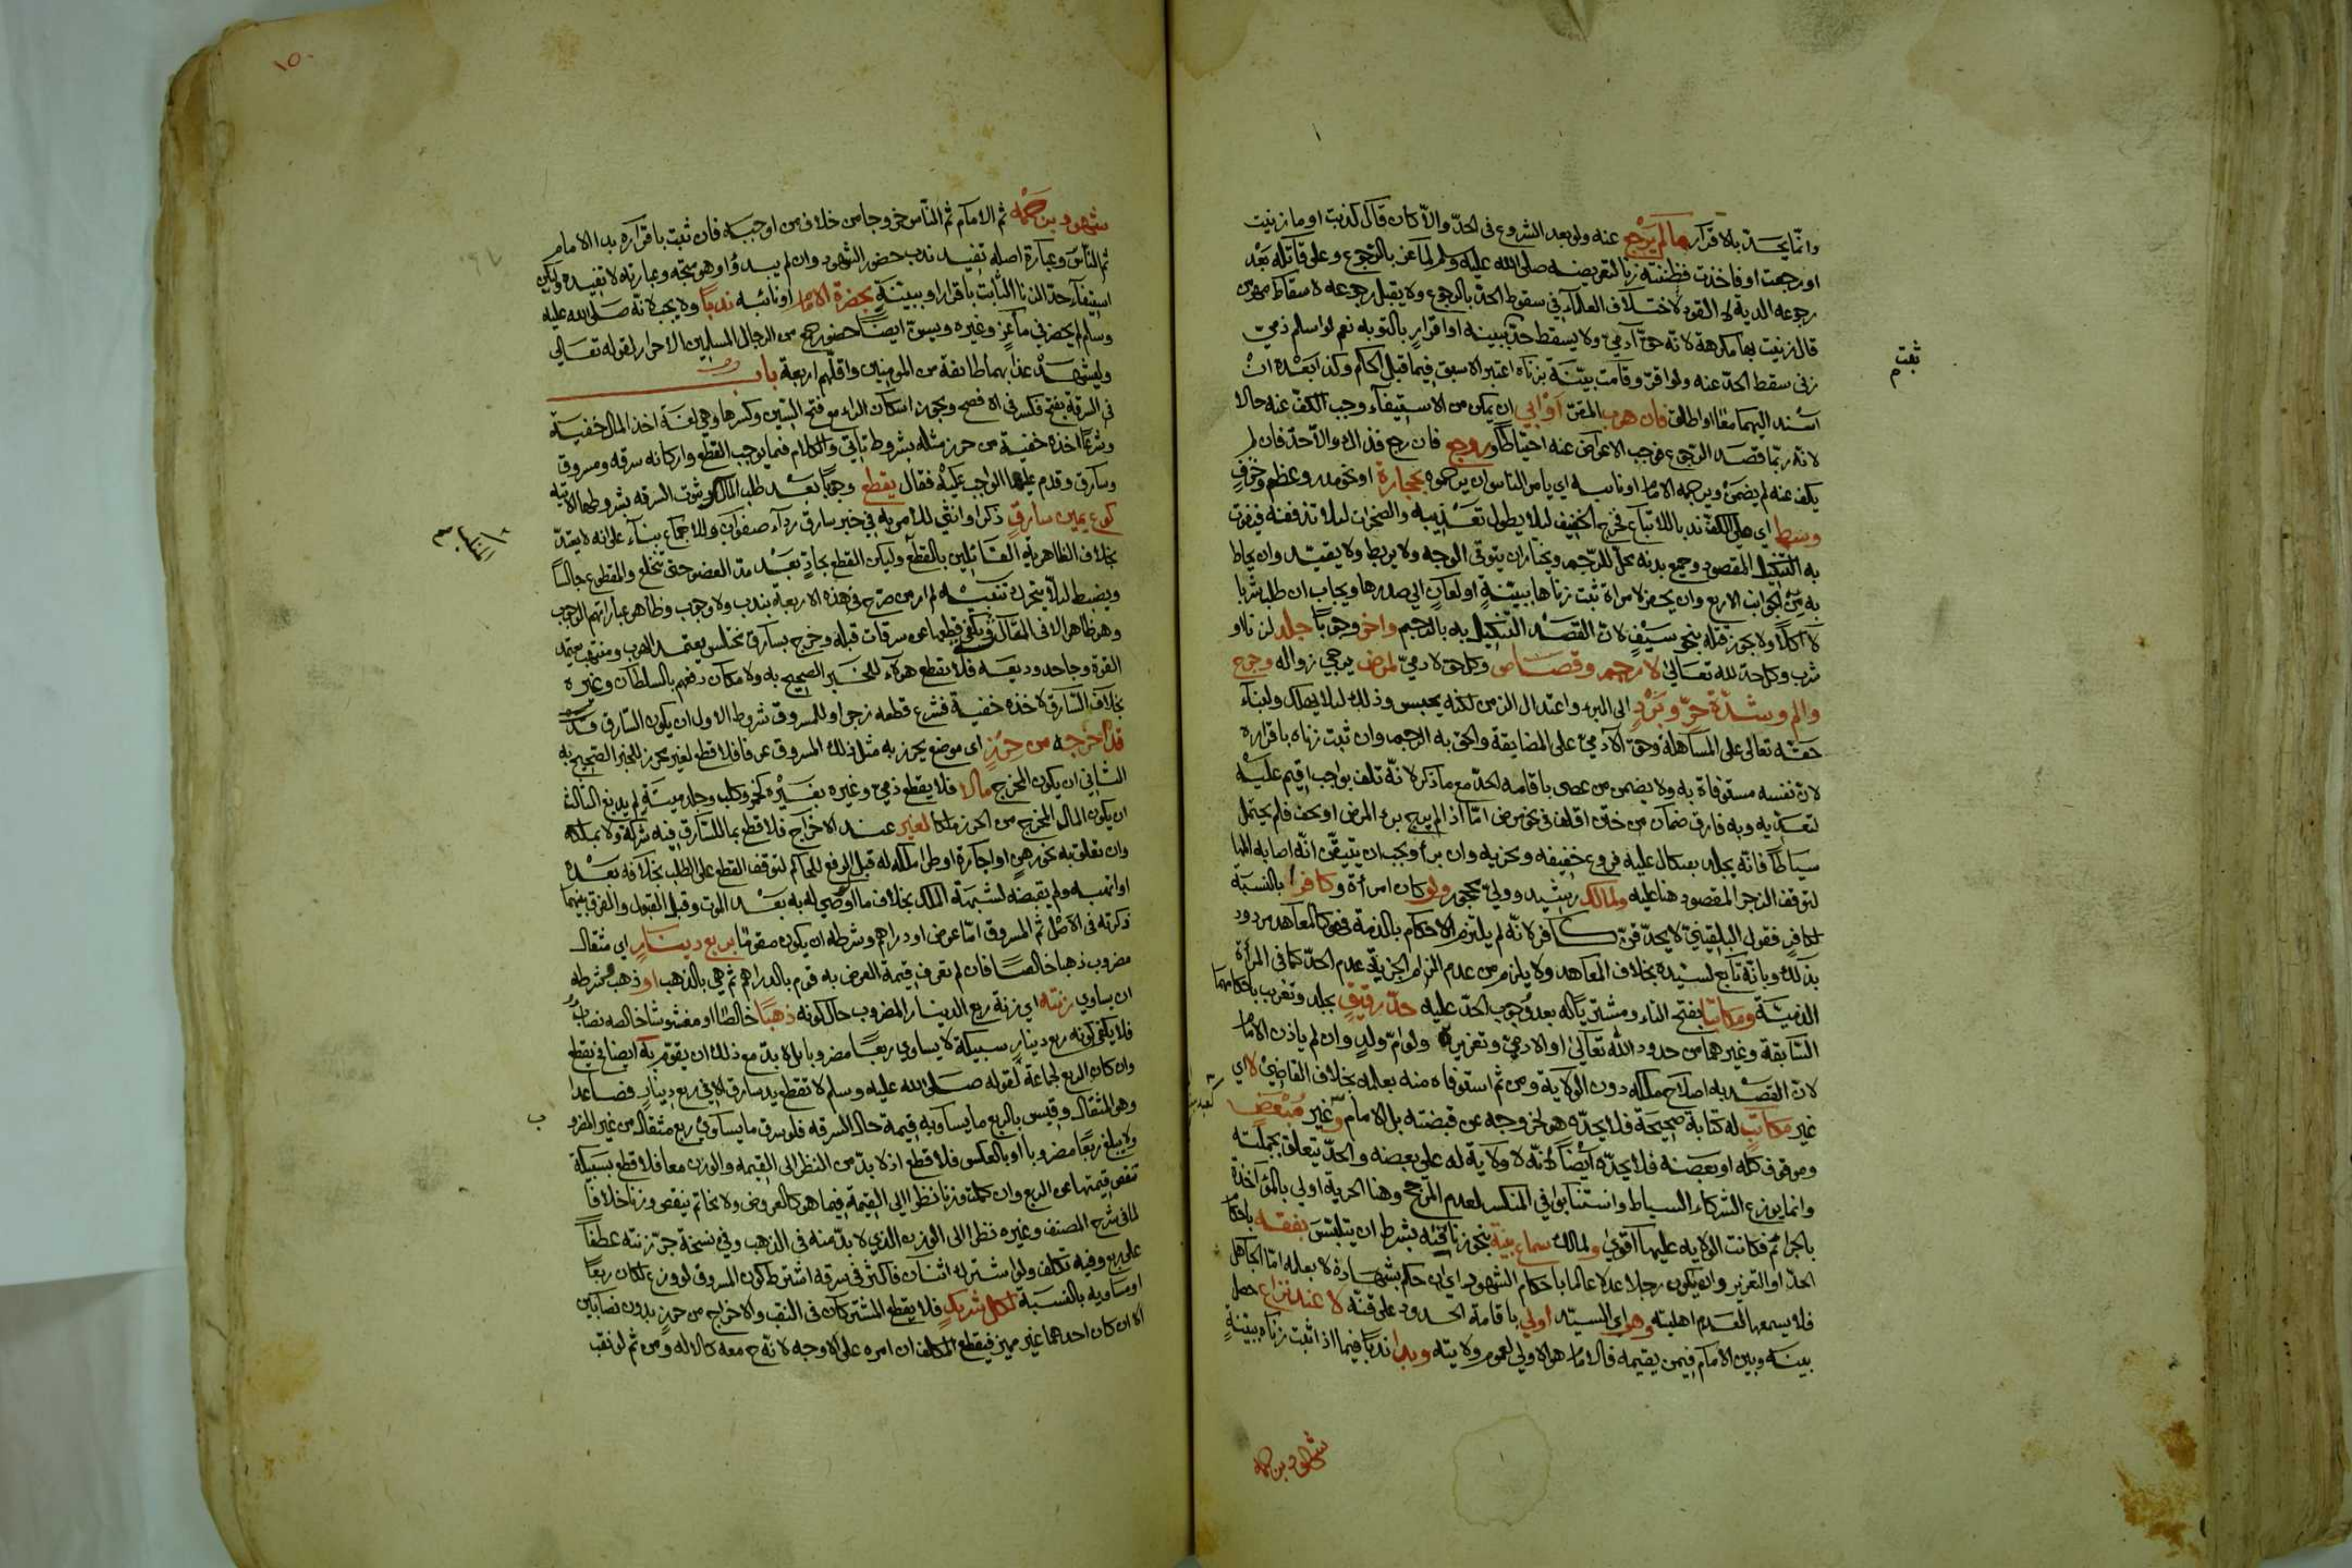 وانما يحد بالاقرار ما لم يرجع عنه ولو بعد الشروع في الحد والا كان قال كذبت او ما زنيت
او رجعت او فاخذت فظننته زنا لتعريضه صلى الله عليه وسلم لماعز بالرجوع وعلى قاتله بعد
رجوعه الدية لا القود لاختلاف العلماء في سقوط الحد بالرجوع ولا يقبل رجوعه لاسقاط مهر من
قال زنيت بها مكرهة لانه حق آدمي ولا يسقط حد ببينة او اقرار بالتوبة نعم لو اسلم ذمي
زنى سقط الحد عنه ولو اقر وقامت بينة بزناه اعتبر الاسبق فيما قبل الحكم وكذا بعده ان
اسند اليهما معا او اطلق فان هرب المقر او ابى ان يمكن من الاستيفاء وجب الكف عنه حالا
لانه ربما قصد الرجوع فوجب الاعراض عنه احتياطا ورجم فان رجع فذاك والا حد فان لم
يكف عنه لم يضمن ويرجمه الامام او نائبه اي يامر الناس ان يرجموه بحجارة او نحو مدر وعظم وخزف
وسط اي ملئ الكف ندبا للاتباع فخرج الخفيف لئلا يطول تعذيبه والصخرات لئلا تذففه فيفوت
به التنكيل المقصود وجميع بدنه محل للرجم ويختار ان يتوقى الوجه ولا يربط ولا يقيد وان يحاط
به من الجوانب الاربع وان يحفر لامراة ثبت زناها ببينة او لعان الى صدرها ويجاب ان طلب شربا
لا اكلا ولا يجوز قتله بنحو سيف لان القصد التنكيل به بالرجم واخر وجوبا جلد لزنا او
شرب وكل حد لله تعالى لا رجم وقصاص وكل حق لادمي لمرض يرجى زواله وجرح
والم وشدة حر وبرد الى البرء واعتدال الزمن لكنه يحبس وذلك لئلا يهلك ولبناء
حقه تعالى على المساهلة وحق الآدمي على المضايقة والحق به الرجم وان ثبت زناه باقراره
لان نفسه مستوفاة به ولا يضمن من عصى باقامة الحد مع ما ذكر لانه تلف بواجب اقيم عليه
لتعديه وبه فارق ضمان من ختن اقلف في نحو مرض اما اذا لم يرج برء المرض او نحف فلم يحتمل
سياطا فانه يجلد بعثكال عليه فروع خفيفة ونجزيه وان برأ ويجب ان يتيقن انه اصابه المها
لتوقف الزجر المقصود هنا عليه ولمالك رشيد وولي محجور ولو كان امرأة وكافرا بالنسبة
لكافر فقول البلقيني لا يحد قن كافر لانه لم يلتزم الاحكام بالذمة فهو كالمعاهد مردود
بذلك وبانه تابع لسيده بخلاف المعاهد ولا يلزم من عدم التزام الجزية عدم الحد كما في المرأة
الذمية ومكاتبا بفتح التاء ومشتر ياله بعد وجوب الحد عليه حد رقيق بجلد وتغريب باحكامهما
السابقة وغيرهما من حدود الله تعالى او الادمي وتعزيره ولو ام ولد وان لم ياذن الامام
لان القصد به اصلاح ملكه دون الولاية ومن ثم استوفاه منه بعلمه بخلاف القاضي لا اي
غير مكاتب له كتابة صحيحة فلا يحده هو لخروجه عن قبضته بل الامام وغير مبعض
وموقوف كله او بعضه فلا يحده ايضا لانه لا ولاية له على بعضه والحد يتعلق بجملته
وانما يوزع الشركاء السياط واستنابوا في المنكسر لعدم المرجح وهنا الحرية اولى بالمؤاخذة
بالجرائم فكانت الولاية عليها اقوى ولمالك سماع بينة بنحو زنا قنه بشرط ان يتلبس بفقه باحكام
الحد او التعزير وان يكون رجلا عدلا عالما باحكام الشهود اي ان حكم بشهادة لا بعلمه اما الجاهل
فلا يسمعها لعدم اهليته وهو اي السيد اولى باقامة الحدود على قنه لا عند نزاع حصل
بينه وبين الامام فيمن يقيمه فالامام هو الاولى لعموم ولايته وبدا ندبا فيما اذا ثبت زناه ببينة
شهود بن حمه
شهود بن حمه ثم الامام ثم الناس خروجا من خلاف من اوجبه فان ثبت باقراره بدا الامام
ثم الناس وعبارة اصله تفيد ندب حضور الشهود وان لم يبدؤا وهو متجه وعبارته لا تفيده وليكن
استيفاء حد الزنا الثابت باقرار او ببينة بحضرة الامام او نائبه ندبا ولا يجب لانه صلى الله عليه
وسلم لم يحضر في ماعز وغيره ويسن ايضا حضور جمع من الرجال المسلمين الاحرار لقوله تعالى
وليشهد عذابهما طائفة من المؤمنين واقلهم اربعة باب
في السرقة بفتح فكسر في الافصح ويجوز اسكان الراء مع فتح السين وكسرها وهي لغة اخذ المال خفية
وشرعا اخذه خفية من حرز مثله بشروط تاتي والكلام فيما يوجب القطع واركانه سرقة ومسروق
وسارق وقدم عليها الواجب عليه فقال يقطع وجوبا بعد طلب المالك وثبوت السرقة بشروطها الاتية
كوع يمين سارق ذكرا وانثى للامر به في خبر سارق رداء صفوان وللاجماع بناء على انه لا يعتد
بخلاف الظاهرية القائلين بالقطع وليكن القطع بحاد بعد مد العضو حتى تنخلع والمقطوع جالسا
ويضبط لئلا يتحرك تنبيه لم ار من صرح في هذه الاربعة بندب ولا وجوب وظاهر عباراتهم الوجوب
وهو ظاهر الا في الفعال ويكفي قطعها عن سرقات قبله وخرج بسارق مختلس يعتمد الهرب ومنتهب يعتمد
القوة وجاحد وديعة فلا يقطع هؤلاء للخبر الصحيح به ولامكان دفعهم بالسلطان وغيره
بخلاف السارق لاخذه خفية فشرع قطعه زجرا وللمسروق شروط الاول ان يكون السارق
قد اخرجه من حرز اي موضع يحرز به مثل ذلك المسروق عرفا فلا قطع لغير محرز للخبر الصحيح به
الثاني ان يكون المخرج مالا فلا يقطع ذمي وغيره بغيره كخمر وكلب وجلد ميتة لم يدبغ الثالث
ان يكون المال المخرج من الحرز ملكا لغير عند الاخراج فلا قطع بما للسارق فيه شركة ولا بملكه
وان تعلق به نحو رهن او اجارة او طرا ملكه له قبل الرفع للحاكم لتوقف القطع على الطلب بخلافه بعده
او اتهبه ولم يقبضه لشبهة الملك بخلاف ما اوصي له به بعد الموت وقبل القبول والفرق بينهما
ذكرته في الاصل ثم المسروق اما عرض او دراهم وشرطه ان يكون مقوما بربع دينار اي مثقال
مضروب ذهبا خالصا فان لم تعرف قيمة العرض به قوم بالدراهم ثم هي بالذهب او ذهب وشرطه
ان يساوي زنته اي زنة ربع الدينار المضروب حال كونه ذهبا خالصا او مغشوشا خالصه نصاب
فلا يكفي كونه ربع دينار سبيكة لا يساوي ربعا مضروبا بل لا بد مع ذلك ان يقوم به ايضا في يقطع
وان كان الربع لجماعة لقوله صلى الله عليه وسلم لا تقطع يد سارق الا في ربع دينار فصاعدا
وهو المثقال وقيس بالربع ما يساويه قيمة حال السرقة فلو سرق ما يساوي ربع مثقال من غير المضروب
ولا يبلغ ربعا مضروبا او بالعكس فلا قطع اذ لا بد من النظر الى القيمة والوزن معا فلا قطع بسبيكة
تنقص قيمتها عن الربع وان كملت وزنا نظرا الى القيمة فيما هو كالعروض ولا بخاتم ينقص وزنا خلافا
لما في شرح المصنف وغيره نظرا الى الوزن الذي لا بد منه في الذهب وفي نسخة جر زنته عطفا
على ربع وفيه تكلف ولو اشترك اثنان فاكثر في سرقة اشترط كون المسروق لو وزع لكان ربعا
او مساويه بالنسبة لكل شريك فلا يقطع المشتركان في النقب والاخراج من حرز بدون نصابين
الا ان كان احدهما غير مميز فيقطع المكلف ان امره على الاوجه لانه ح معه كالاله ومن ثم لو نقب